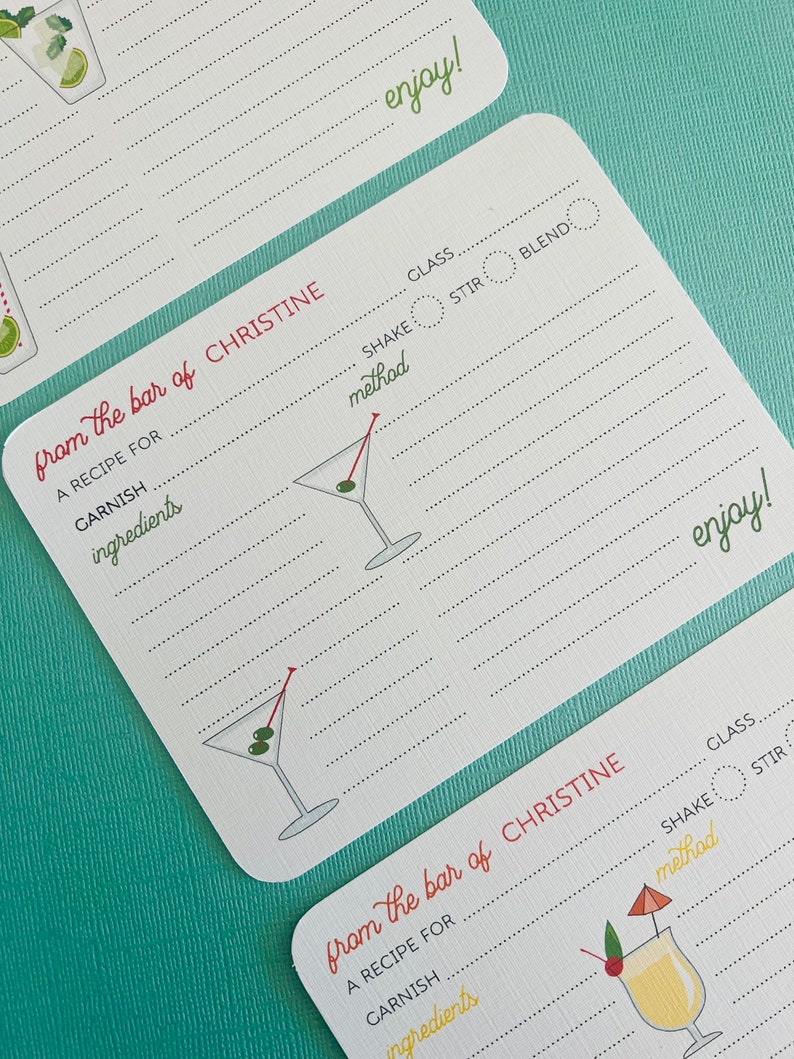 enjoy!
from the bar of CHRISTINE
A RECIPE FOR GLASS
GARNISH SHAKE STIR BLEND
ingredients method
enjoy!
from the bar of CHRISTINE
A RECIPE FOR GLASS
GARNISH SHAKE STIR
ingredients method